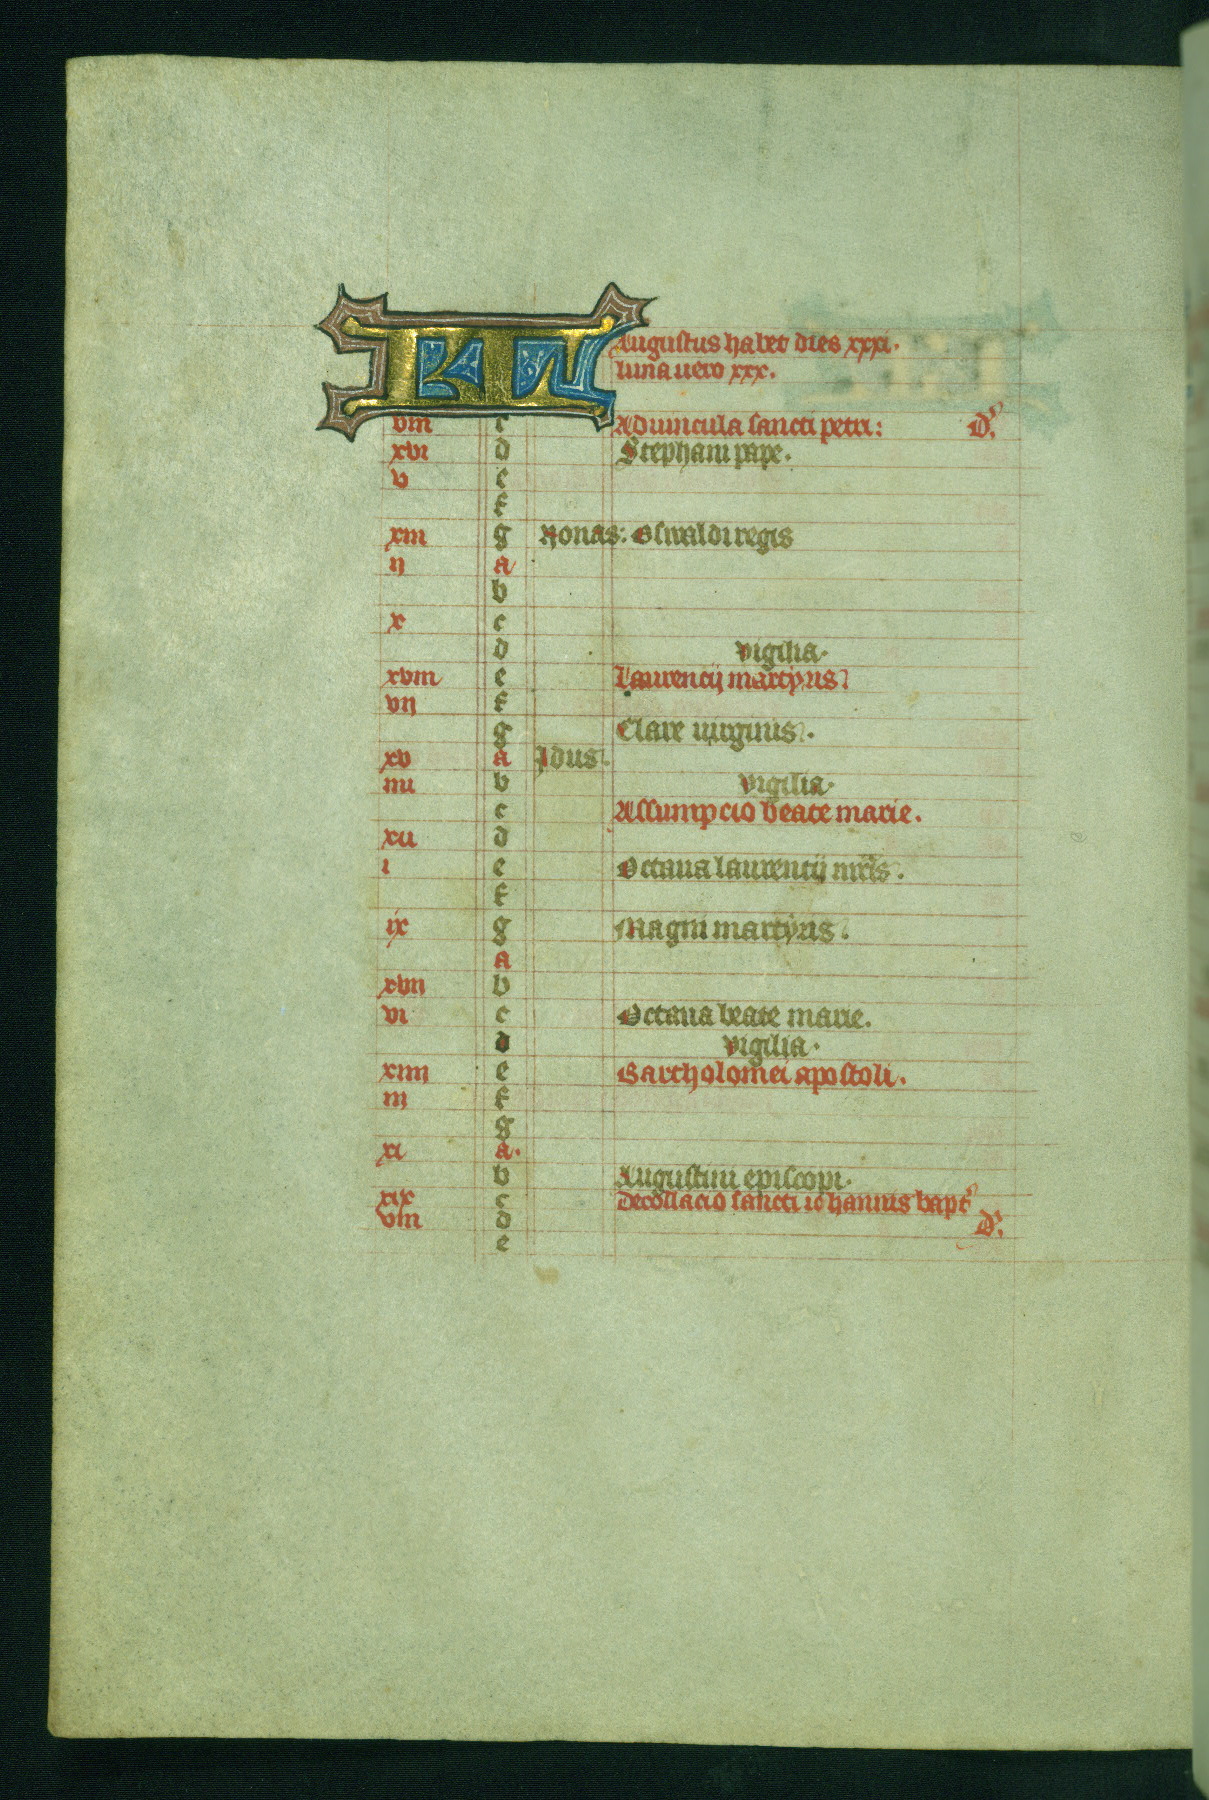 KL Augustus habet dies xxxi.
luna uero xxx.
viii c Aduincula sancti petri: D'.
xvi d Stephani pape.
v e
f
xiii g Nonas: Oswaldi regis
ij a
b
x c
d vigilia.
xviii e Laurencij martyris
vij f
g Clare uirginis.
xv a Idus
iiii b vigilia.
c Assumpcio beate marie.
xii d
i e Octaua laurentij mris.
f
ix g Magni martyris.
a
xvii b
vi c Octaua beate marie.
d vigilia.
xiiij e Bartholomei apostoli.
iii f
g
xi a.
b Augustini episcopi.
xix c Decollacio sancti iohannis bapt'
viii d D'.
e